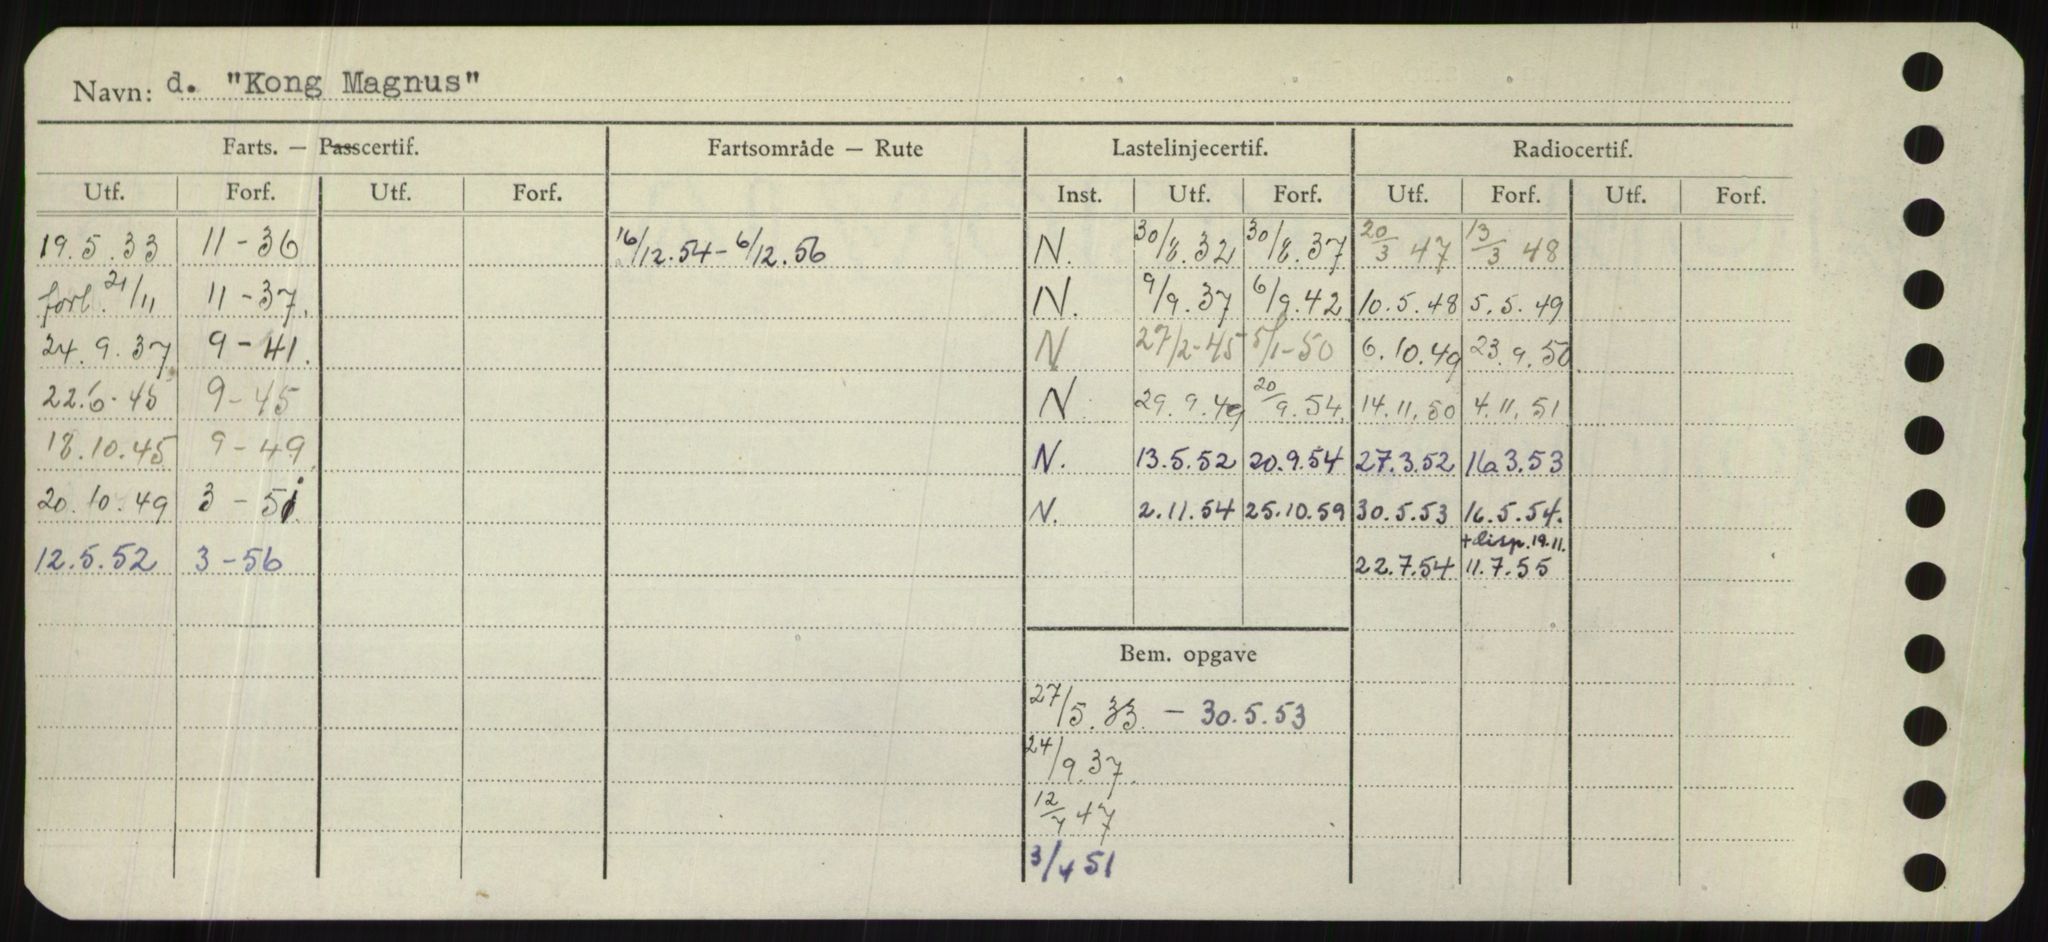 Navn: d. "Kong Magnus"
Farts. — Passcertif. Fartsområde — Rute Lastelinjecertif. Radiocertif.
Utf. Forf. Utf. Forf. Inst. Utf. Forf. Utf. Forf. Utf. Forf.
19.5.33 11-36 16/12.54-6/12.56 N. 30/8.32 30/8.37 20/3 47 13/3 48
forl. 21/11 11-37. N. 9/9.37 6/9.42 10.5.48 5.5.49
24.9.37 9-41. N 27/2-45 5/1-50 6.10.49 23.9.50
22.6.45 9-45 N. 29.9.49 20/9.54. 14.11.50 4.11.51
18.10.45 9-49 N. 13.5.52 20.9.54 27.3.52 16.3.53
20.10.49 3-51 N. 2.11.54 25.10.59 30.5.53 16.5.54.
+disp.19.11.
12.5.52 3-56 22.7.54 11.7.55
Bem. opgave
27/5.33 - 30.5.53
24/9.37.
12/7 47
3/4 51